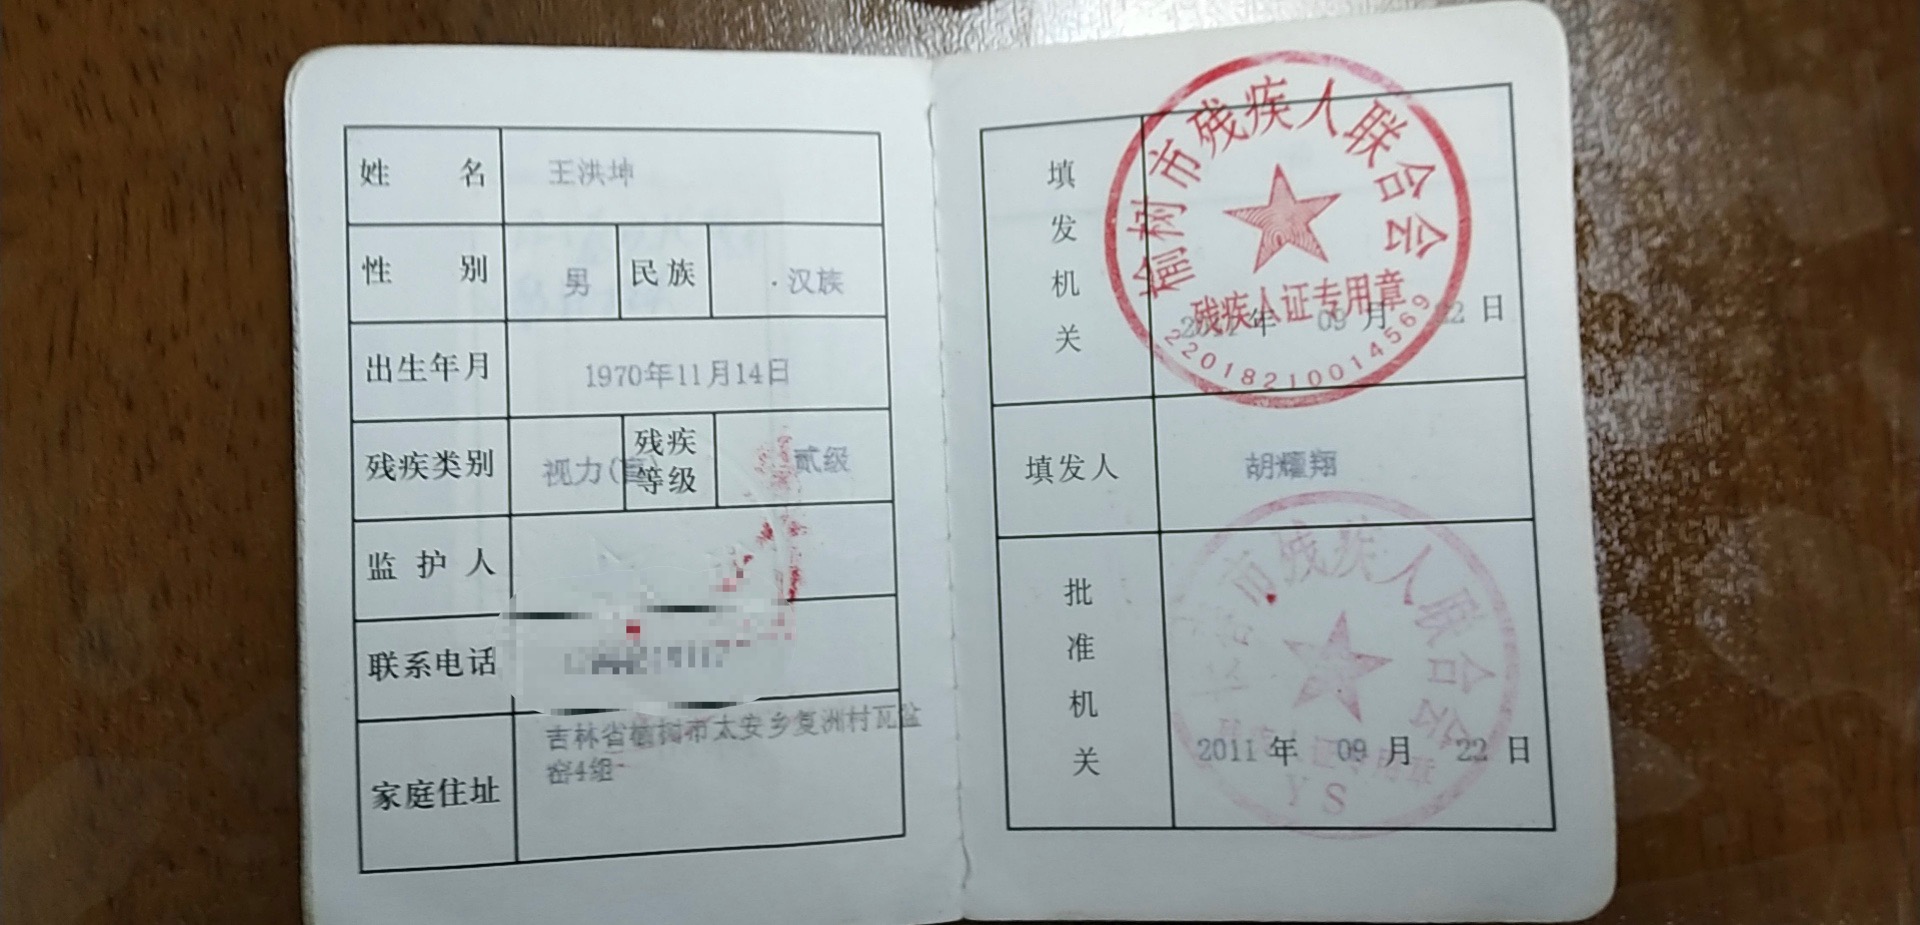 姓名 王洪坤
性别 男 民族 汉族
出生年月 1970年11月14日
残疾类别 视力(盲) 残疾等级 贰级
监护人
联系电话
家庭住址 吉林省榆树市太安乡复洲村瓦盆
窑4组
填发机关
榆树市残疾人联合会
残疾人证专用章
22018210014569
年 09 月 22 日
填发人 胡耀翔
批准机关
市残疾人联合会
YS
2011 年 09 月 22 日